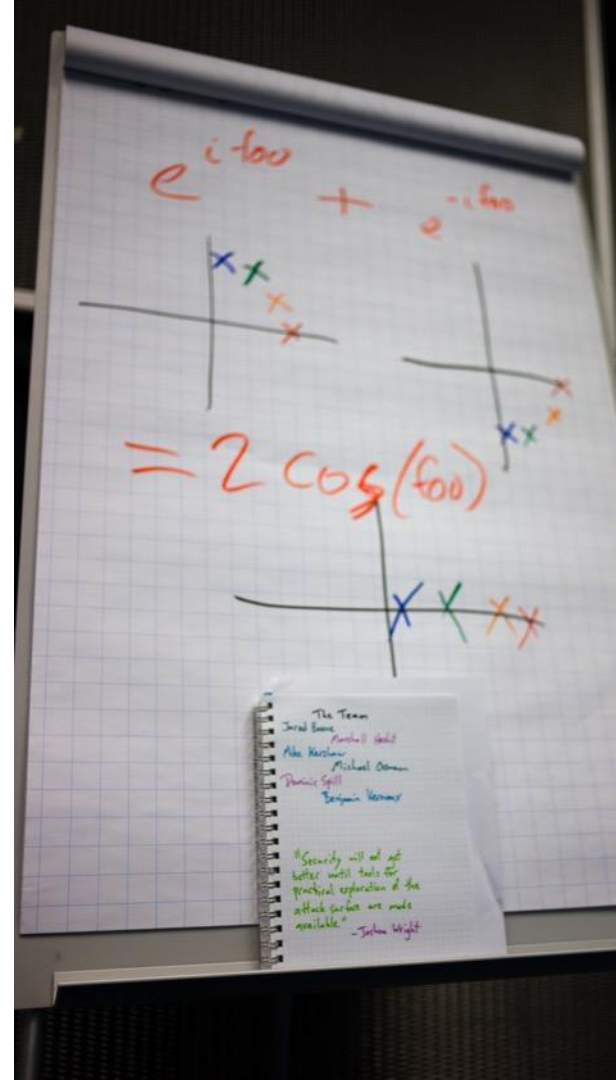 e^{i foo} + e^{-i foo}
= 2 cos(foo)
The Team
Jared Boone
Marshall Hecht
Mike Kershaw
Michael Ossmann
Dominic Spill
Benjamin Vernoux
"Security will not get
better until tools for
practical exploration of the
attack surface are made
available"
-Joshua Wright